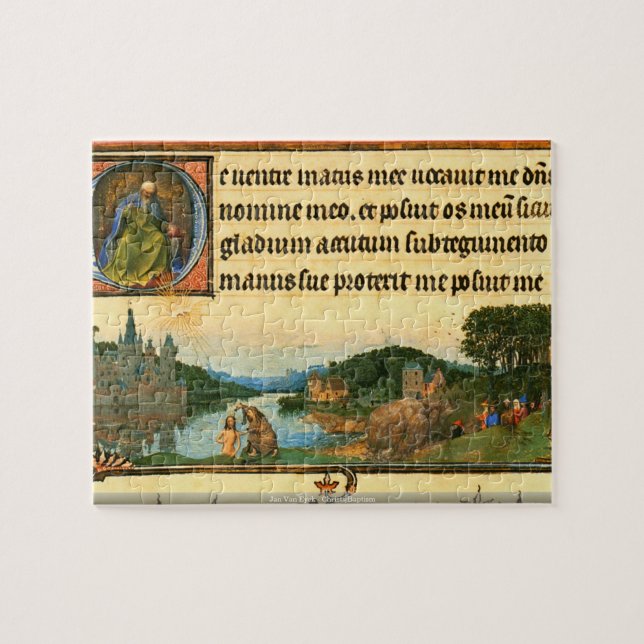 e ventre matris mee vocavit me dn̄s
nomine meo, et posuit os meū sicut
gladium accutum sub tegumento
manus sue proterit me posuit me
Jan Van Eyck - Christs Baptism